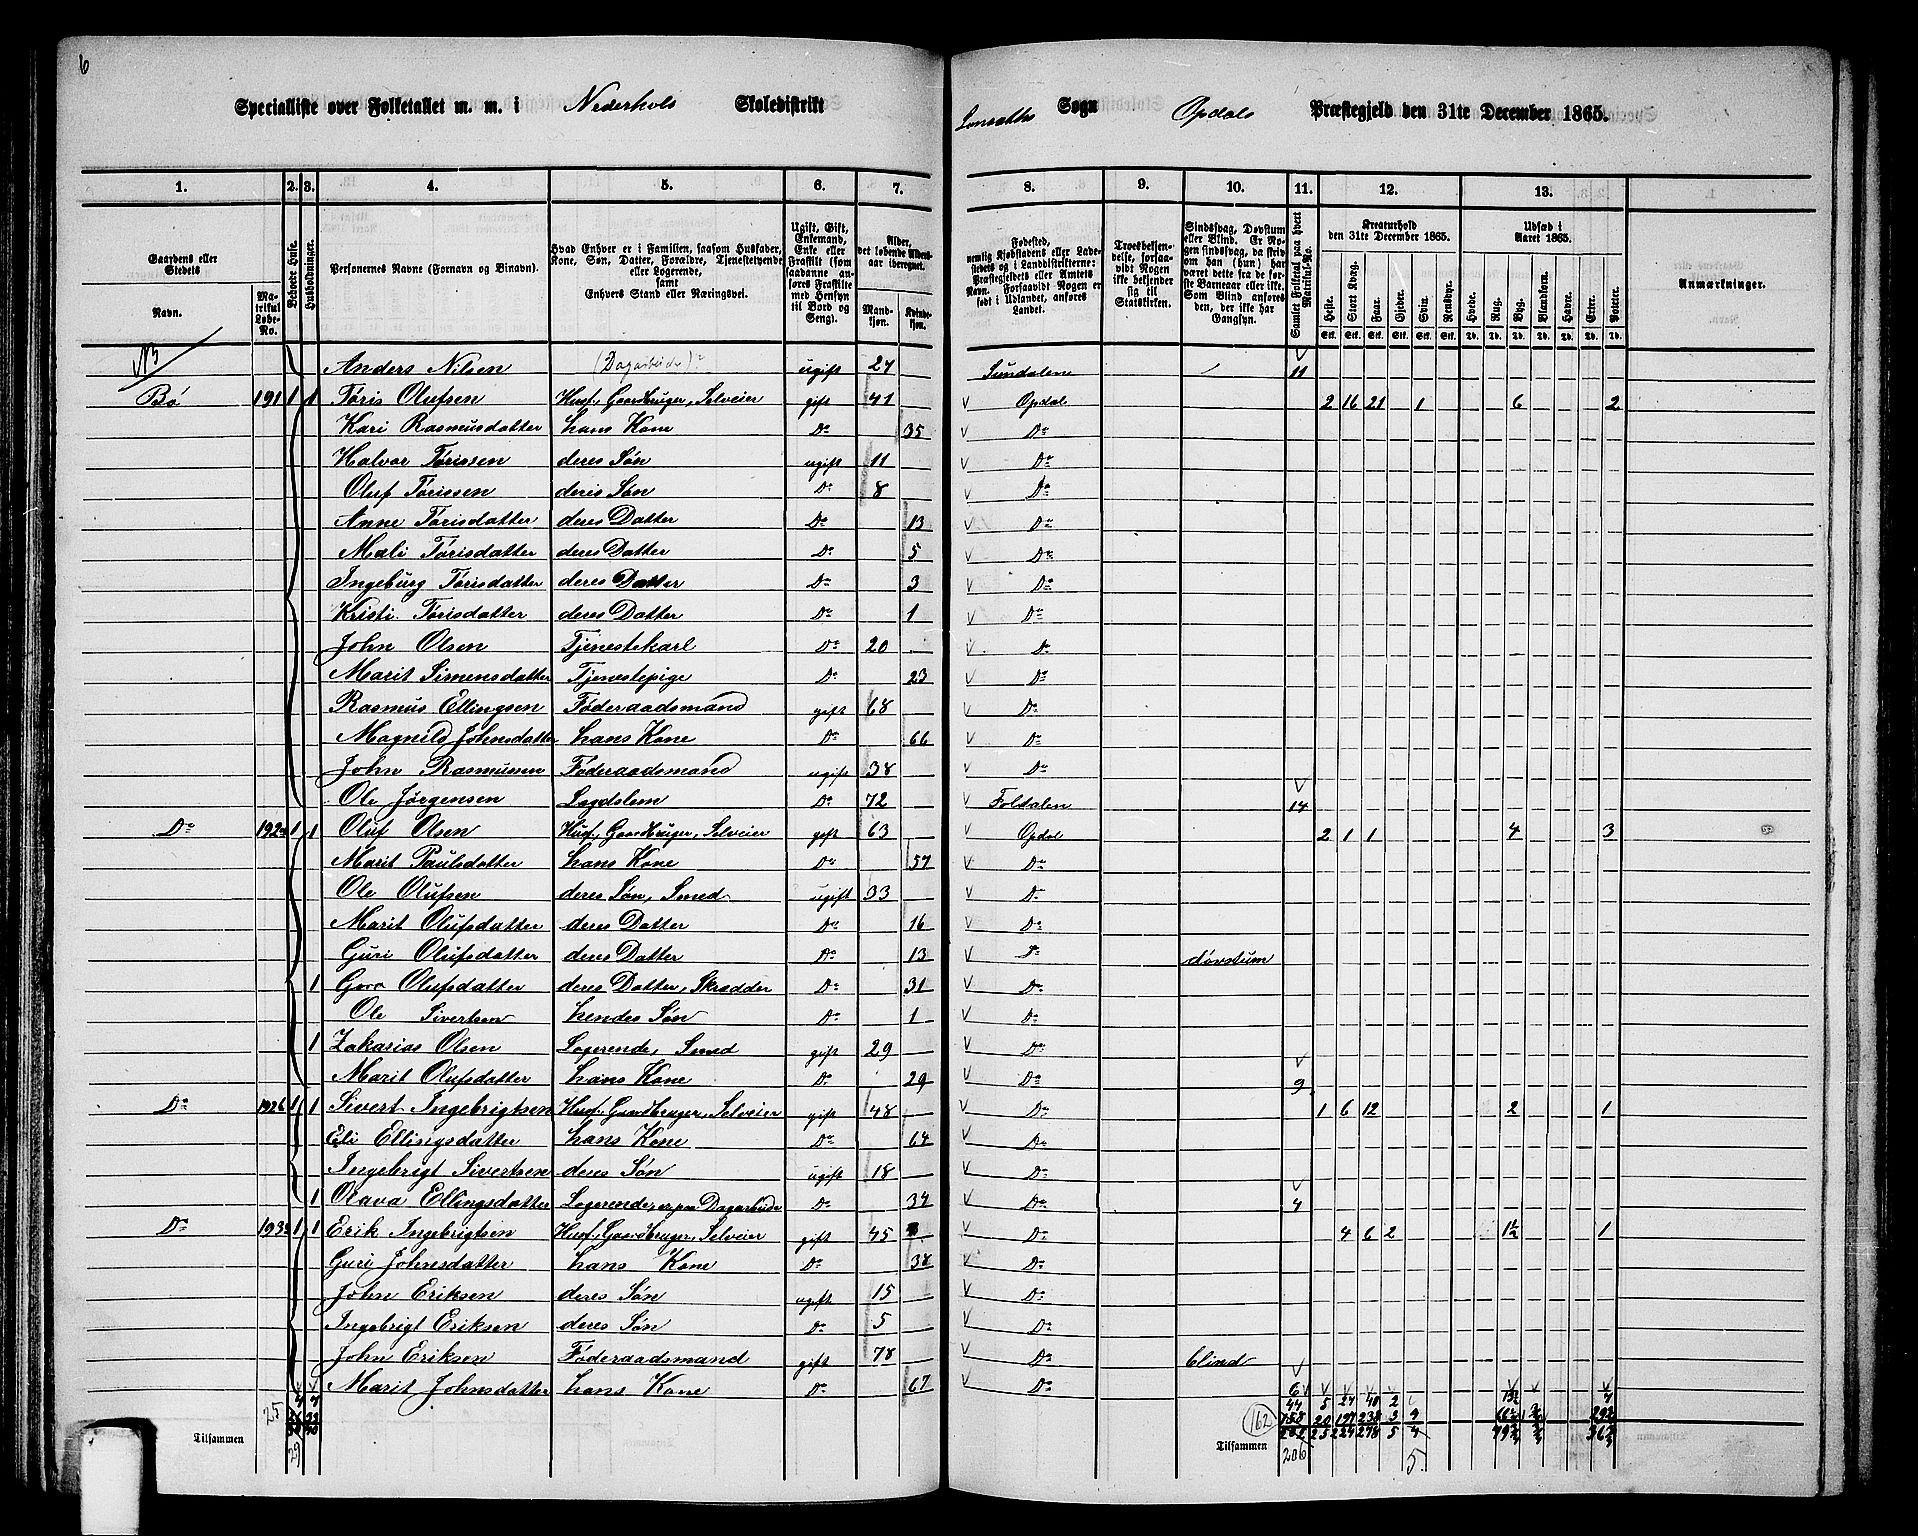 6
Specialliste over Folketallet m. m. i Nederhols Skoledistrikt Sogn Opdals Præstegjeld den 31te December 1865.
1. 2. 3. 4. 5. 6. 7. 8. 9. 10. 11. 12. 13.
Gaardens eller Stedets
Navn. Matrikul Løbe-No.
Beboede Huse.
Husholdninger.
Personernes Navne (Fornavn og Binavn).
Hvad Enhver er i Familien, saasom Husfader, Kone, Søn, Datter, Forældre, Tjenestetyende eller Logerende, samt Enhvers Stand eller Næringsvei.
Ugift, Gift, Enkemand, Enke eller Fraskilt (som saadanne anføres Fraskilte med Hensyn til Bord og Seng).
Alder, det løbende Aldersaar iberegnet.
Mandkjøn. Kvindekjøn.
Fødested, nemlig Kjøbstadens eller Ladestedets og i Landdistrikterne: Præstegjeldets eller Amtets Navn. Forsaavidt Nogen er født i Udlandet, anføres Landet.
Troesbekjendelse, forsaavidt Nogen ikke bekjender sig til Statskirken.
Sindssvag, Døvstum eller Blind. Er Nogen sindssvag, da skrives om han (hun) har været dette fra de første Barneaar eller ikke. Som Blind anføres den, der ikke har Gangsyn.
Samlet Folketal paa hvert Matrikul-No.
Kreaturhold den 31te December 1865.
Heste. Stort Kvæg. Faar. Gjeder. Svin. Rensdyr.
Udsæd i Aaret 1865.
Hvede. Rug. Byg. Blandkorn. Havre. Erter. Poteter.
Anmærkninger.
Anders Nilsen (Dagarbeider)? ugift 27 Sundalen 11
Bø 191 1 1 Tøris Olufsen Husf., Gaardbruger, Selveier gift 41 Opdal 2 16 21 1 6 2
Kari Rasmusdatter hans Kone Do 35 Do
Halvor Tørissen deres Søn ugift 11 Do
Oluf Tørissen deres Søn Do 8 Do
Anne Tørisdatter deres Datter Do 13 Do
Mali Tørisdatter deres Datter Do 5 Do
Ingeburg Tørisdatter deres Datter Do 3 Do
Kristi Tørisdatter deres Datter Do 1 Do
John Olsen Tjenestekarl Do 20 Do
Marit Simensdatter Tjenestepige Do 23 Do
Rasmus Ellingsen Føderaadsmand gift 68 Do
Magnild Johnsdatter hans Kone Do 66 Do
John Rasmussen Føderaadsmand ugift 38 Do
Ole Jørgensen Lagdslem Do 72 Foldalen 14
Do 192a 1 1 Oluf Olsen Husf., Gaardbruger, Selveier gift 63 Opdal 2 1 1 4 3
Marit Paulsdatter hans Kone Do 57 Do
Ole Olufsen deres Søn, Smed ugift 33 Do
Marit Olufsdatter deres Datter Do 16 Do
Guri Olufsdatter deres Datter Do 13 Do døvstum
1 Goro Olufsdatter deres Datter, Skrædder Do 31 Do
Ole Sivertsen hendes Søn Do 1 Do
1 Zakarias Olsen Logerende, Smed gift 29 Do
Marit Olufsdatter hans Kone Do 29 Do 9
Do 192b 1 1 Sivert Ingebrigtsen Husf., Gaardbruger, Selveier gift 48 Do 1 6 12 2 1
Eli Ellingsdatter hans Kone Do 64 Do
Ingebrigt Sivertsen deres Søn ugift 18 Do
1 Olava Ellingsdatter Logerende, er paa Dagarbeide Do 37 Do 4
Do 193a 1 1 Erik Ingebrigtsen Husf., Gaardbruger, Selveier gift 45 Do 4 6 2 1½ 1
Guri Johnsdatter hans Kone Do 38 Do
John Eriksen deres Søn ugift 15 Do
Ingebrigt Eriksen deres Søn Do 5 Do
John Eriksen Føderaadsmand gift 78 Do blind
Marit Johnsdatter hans Kone Do 67 Do 6
4 7 44 5 24 40 2
25 162 158 20 197 238 3
Tilsammen Tilsammen 25 224 278 5 4
29 206 5